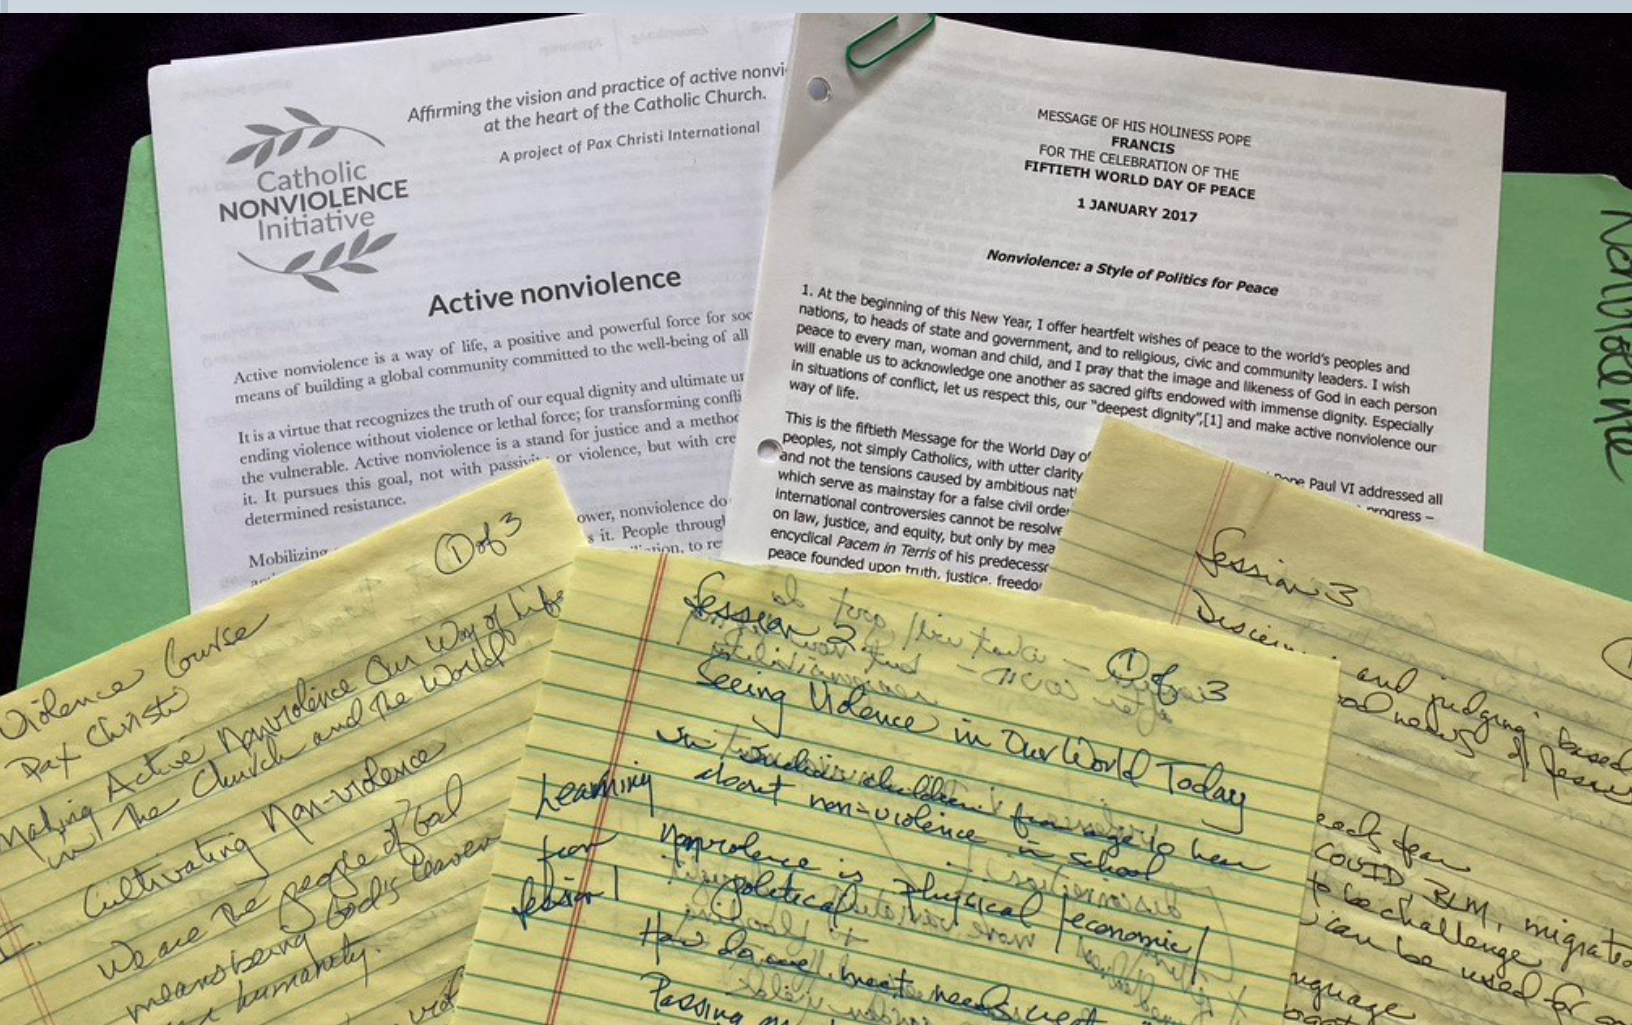 Affirming the vision and practice of active nonvi
at the heart of the Catholic Church.
A project of Pax Christi International
Catholic
NONVIOLENCE
Initiative
Active nonviolence
Active nonviolence is a way of life, a positive and powerful force for soc
means of building a global community committed to the well-being of all
It is a virtue that recognizes the truth of our equal dignity and ultimate un
ending violence without violence or lethal force; for transforming confli
the vulnerable. Active nonviolence is a stand for justice and a method
it. It pursues this goal, not with passivity or violence, but with cre
determined resistance.
Mobilizing ower, nonviolence do
s it. People through
to re
MESSAGE OF HIS HOLINESS POPE
FRANCIS
FOR THE CELEBRATION OF THE
FIFTIETH WORLD DAY OF PEACE
1 JANUARY 2017
Nonviolence: a Style of Politics for Peace
1. At the beginning of this New Year, I offer heartfelt wishes of peace to the world's peoples and
nations, to heads of state and government, and to religious, civic and community leaders. I wish
peace to every man, woman and child, and I pray that the image and likeness of God in each person
will enable us to acknowledge one another as sacred gifts endowed with immense dignity. Especially
in situations of conflict, let us respect this, our "deepest dignity",[1] and make active nonviolence our
way of life.
This is the fiftieth Message for the World Day of
Pope Paul VI addressed all
peoples, not simply Catholics, with utter clarity
progress –
and not the tensions caused by ambitious nati
which serve as mainstay for a false civil order
international controversies cannot be resolve
on law, justice, and equity, but only by mea
encyclical Pacem in Terris of his predecesso
peace founded upon truth, justice, freedo
Violence Course
1 of 3
Pax Christi
Making Active Nonviolence Our Way of Life
in The Church and The World
Cultivating Non-violence
We are The people of God
means being God's leaven
humanity.
Session 2
1 of 3
Seeing Violence in Our World Today
Learning
from
Session 1
In India children from age 10 hear
about non-violence in school
Nonviolence is physical/economic/
political
How do we meet needs
Passing
Session 3
and judging based
good news of Jesus
each fear
COVID, BLM, migrate
to be challenge
can be used for